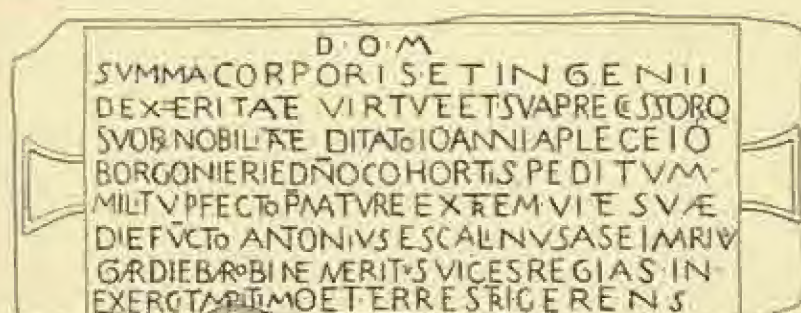 D·O·M
SVMMA CORPORIS ET INGENII
DEXTERITATE VIRTVTE ET SVAPRECESSORQ
SVOR NOBILITATE DITATO IOANNI APLECEIO
BORGONIERIE DÑO COHORTIS PEDITVM
MILITV PFECTO PMATVRE EXTREM VITE SVÆ
DIE FVCTO ANTONIVS ESCALINVS ASEIMARIV
GARDIE BAROBINE MERITVS VICES REGIAS IN
ET TERRESTRI GERENS